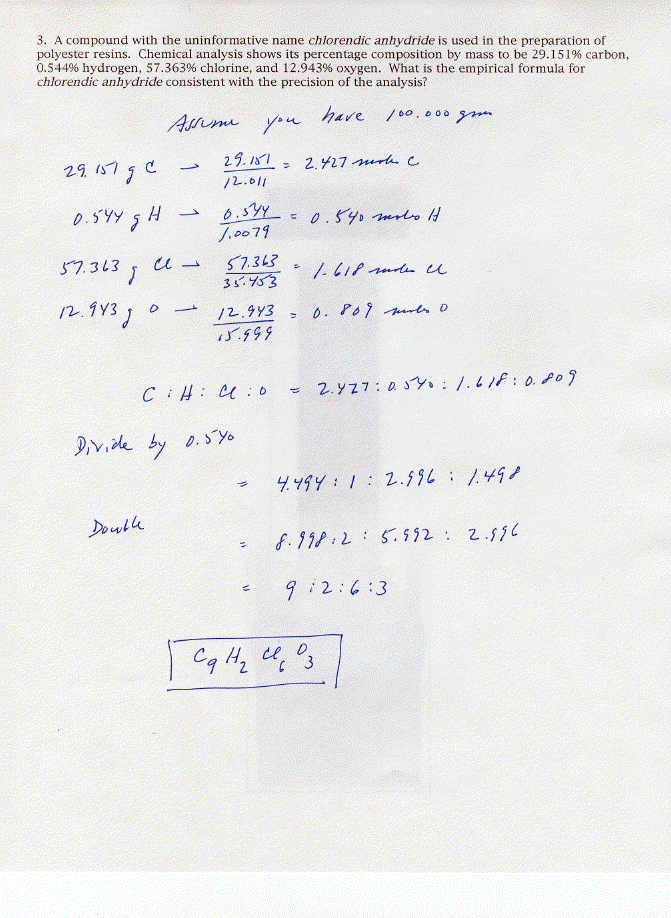 3. A compound with the uninformative name chlorendic anhydride is used in the preparation of
polyester resins. Chemical analysis shows its percentage composition by mass to be 29.151% carbon,
0.544% hydrogen, 57.363% chlorine, and 12.943% oxygen. What is the empirical formula for
chlorendic anhydride consistent with the precision of the analysis?
Assume you have 100.000 gm
29.151 g C → 29.151/12.011 = 2.427 moles C
0.544 g H → 0.544/1.0079 = 0.540 moles H
57.363 g Cl → 57.363/35.453 = 1.618 moles Cl
12.943 g O → 12.943/15.999 = 0.809 moles O
C : H : Cl : O = 2.427 : 0.540 : 1.618 : 0.809
Divide by 0.540
= 4.494 : 1 : 2.996 : 1.498
Double
= 8.998 : 2 : 5.992 : 2.996
= 9 : 2 : 6 : 3
C₉ H₂ Cl₆ O₃